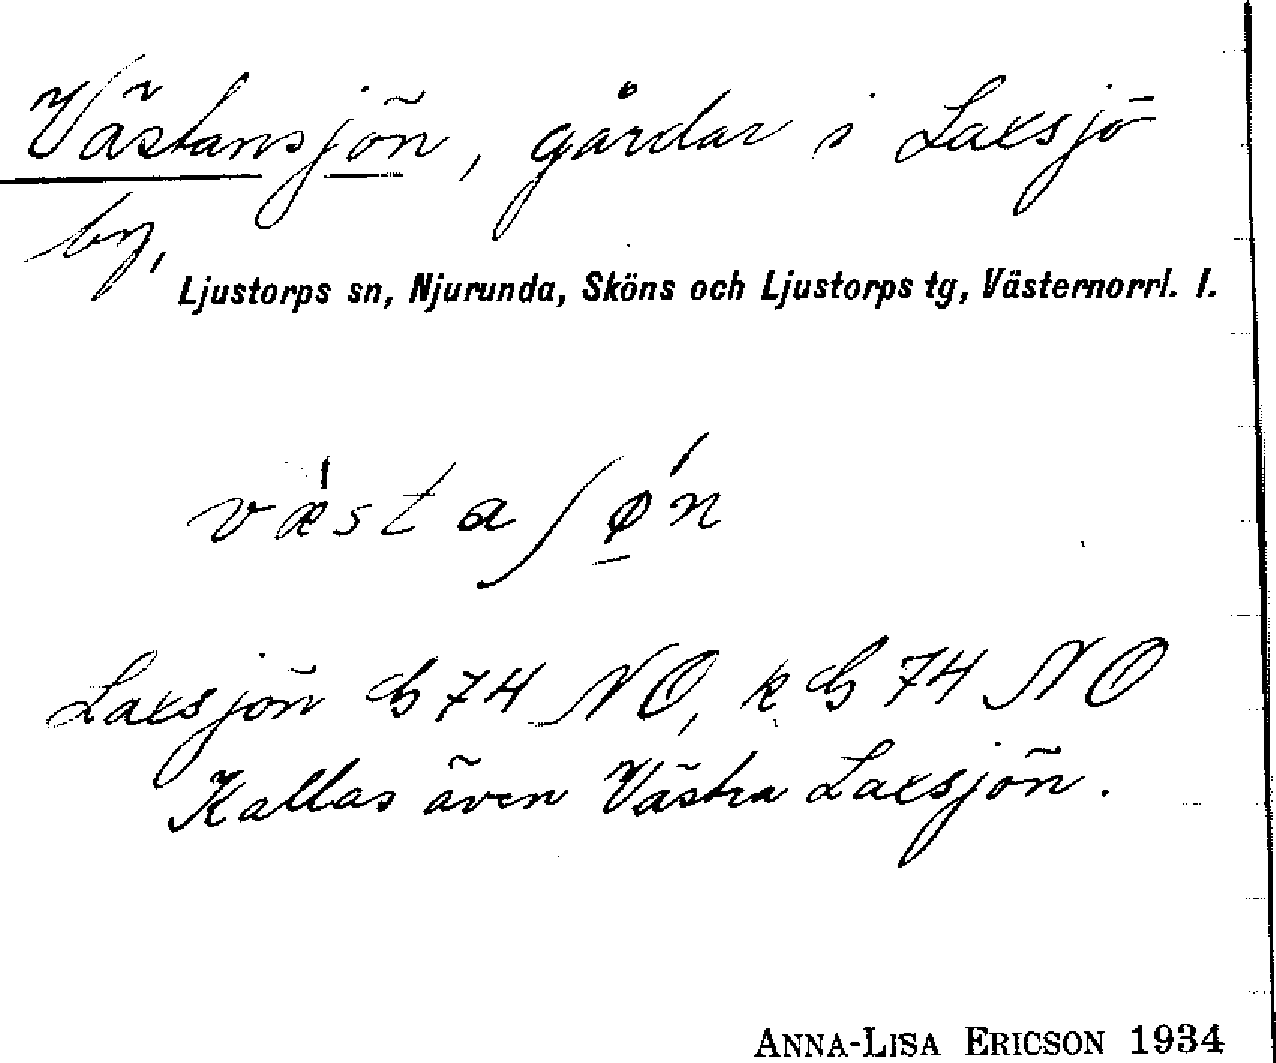 Västansjön, gårdar i Laxsjö
by,
Ljustorps sn, Njurunda, Sköns och Ljustorps tg, Västernorrl. l.
væ̍sta∫ǿ̱n
Laxsjön 74 NO, k 74 NO
Kallas även Västra Laxsjön.
ANNA-LISA ERICSON 1934